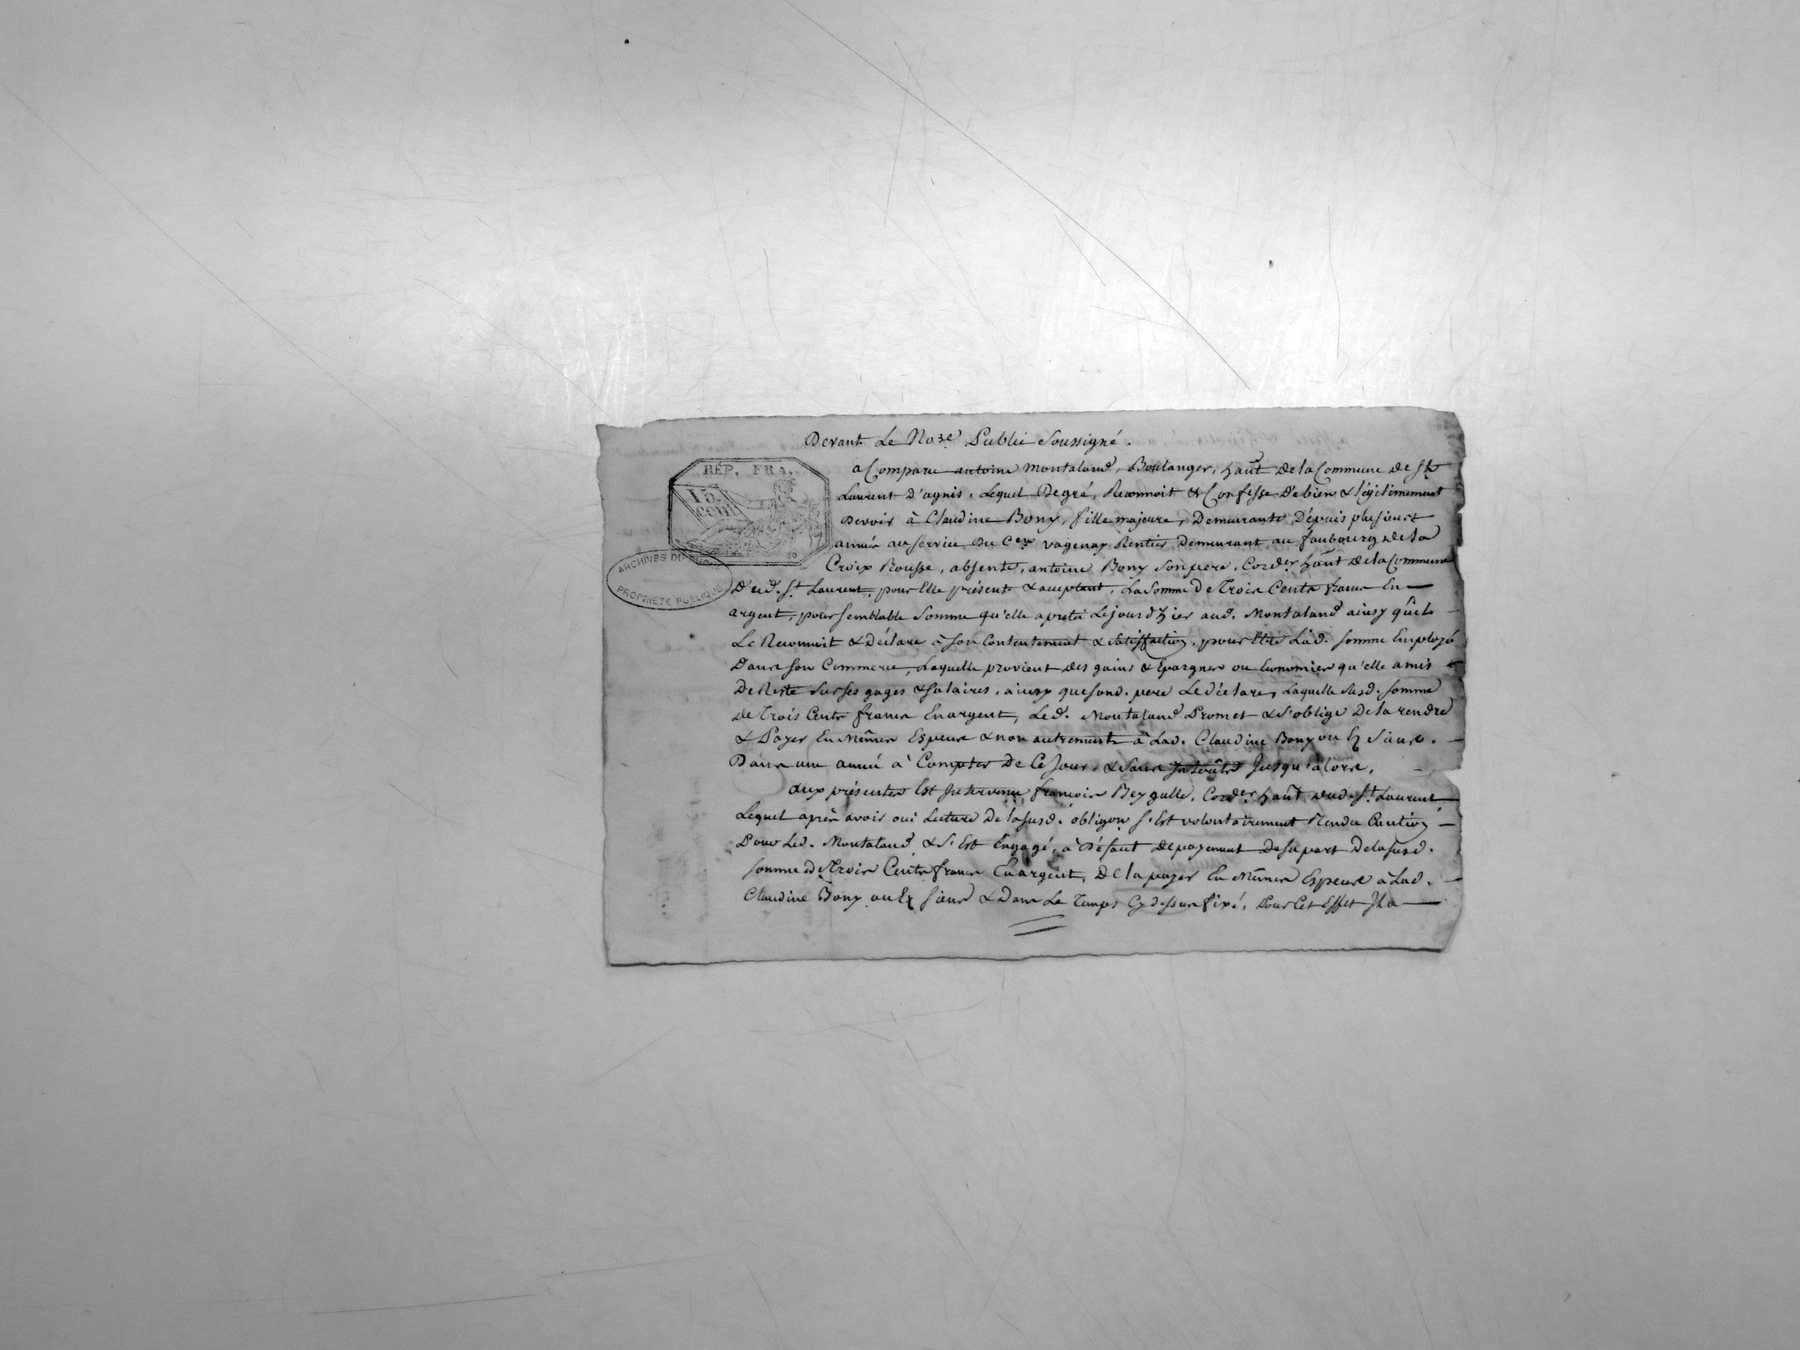 Devant Le No.re Public Soussigné.
RÉP. FRA.
15 cent
a Comparu antoine montaland, Boulanger, haūt dela Commune de St
Laurent d'agnis, Lequel Degré, Reconnoit & Confesse de bien & légitimement
devoir à Claudine Bony, fille majeure, Demeurante Dépuis plusieurs
années au Service Du Cen vagenay Rentier Demeurant au faubourg de la
Croix Rousse, absente, antoine Bony son pere, Cord.er haūt dela Commune
ARCHIVES DU
PROPRIETE PUBLIQUE
D'ud. St Laurent, pour Elle présent & acceptant, La Somme de Trois Cents francs En
argent, pour semblable Somme qu'elle a preté Le jour d'hier aud. Montaland ainsy qu'il
Le Reconnoit & Déclare à son Contentement & satisfaction, pour Etre Lad. somme Employé
Dans son Commerce, Laquelle provient des gains & Epargnes ou Economies qu'elle a mis
De Reste Sur ses gages & salaires, ainsy que sond. pere Le déclare, Laquelle susd. somme
de Trois Cents francs En argent, Led. Montaland Promet & S'oblige De la rendre
& Payer En Mêmes Especes & non autrement à Lad. Claudine Bony ou Es Siens.
Dans une année à Compter de Ce Jour, & Sans Jusqu'alors.
aux présentes Est Intervenu françois Beygulle, Cord.er haūt dud. St Laurent
Lequel après avoir oui Lecture De la susd. obligon s'Est volontairement Rendu Caution
Pour Led. Montaland & S'Est Engagé, à Défaut de payement De sa part De la susd.
somme de Trois Cents francs En argent, De la payer En Mêmes Especes à Lad.
Claudine Bony ou Es siens & Dans Le Temps Cy dessus fixé, Pour Cet Effet Il a